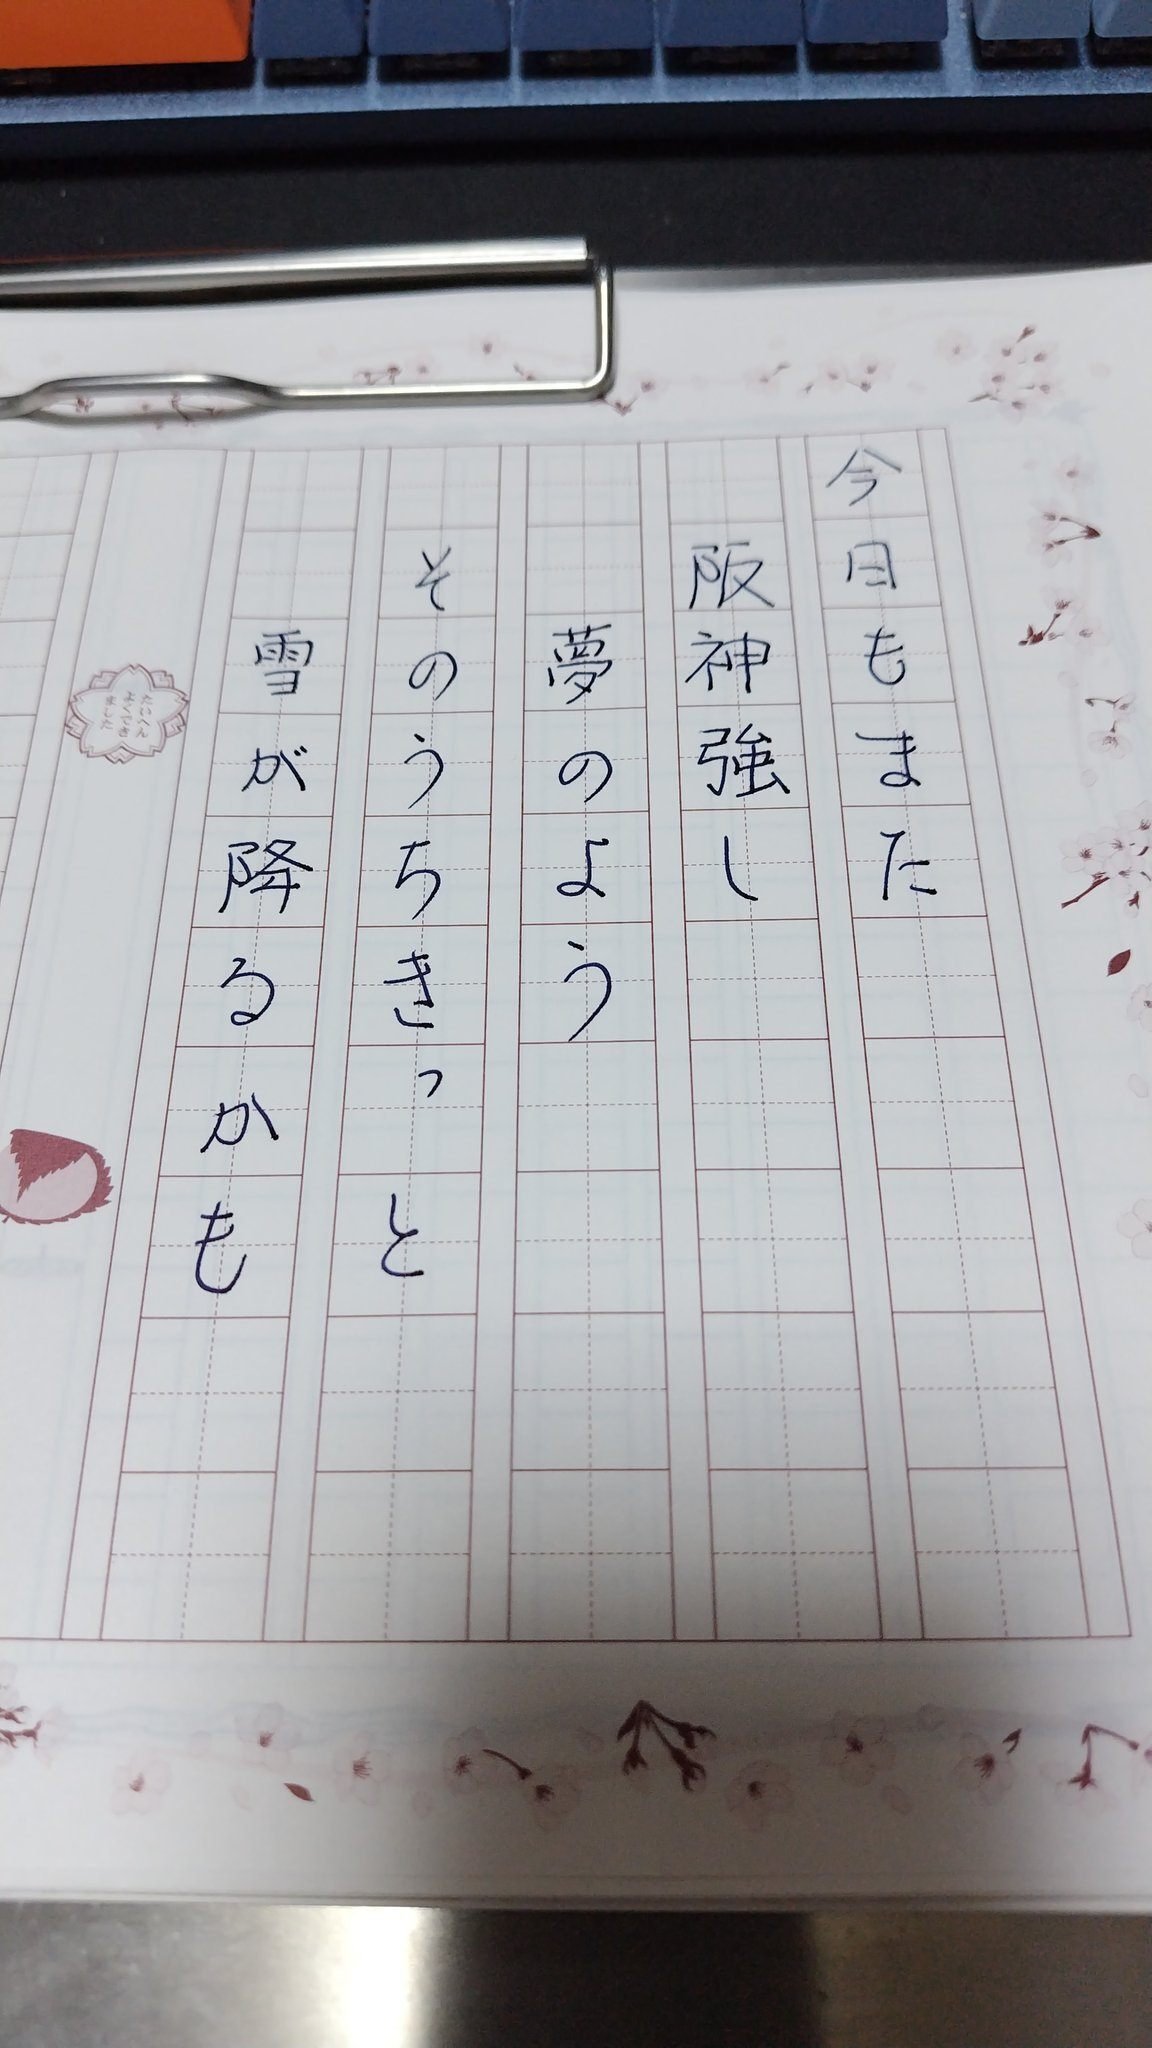 今日もまた
阪神強し
夢のよう
そのうちきっと
雪が降るかも
たいへん
よくでき
ました